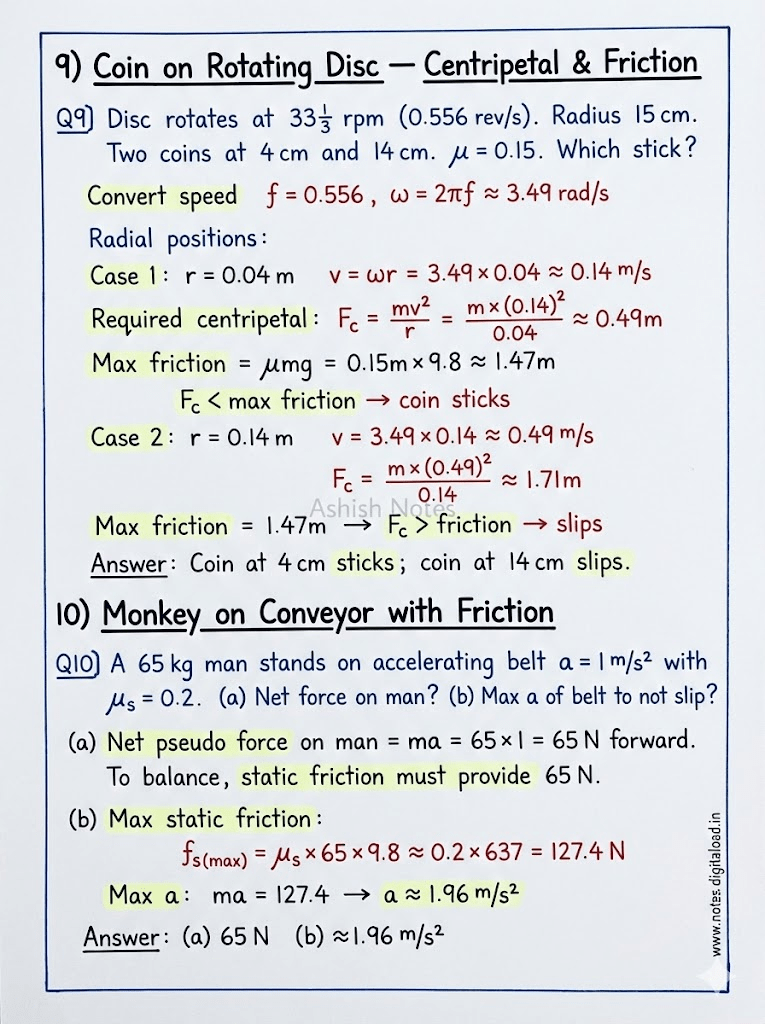 9) Coin on Rotating Disc — Centripetal & Friction
Q9) Disc rotates at 33⅓ rpm (0.556 rev/s). Radius 15 cm.
Two coins at 4 cm and 14 cm. μ = 0.15. Which stick?
Convert speed f = 0.556 , ω = 2πf ≈ 3.49 rad/s
Radial positions:
Case 1: r = 0.04 m v = ωr = 3.49 × 0.04 ≈ 0.14 m/s
Required centripetal: Fc = mv²/r = m × (0.14)²/0.04 ≈ 0.49m
Max friction = μmg = 0.15m × 9.8 ≈ 1.47m
Fc < max friction → coin sticks
Case 2: r = 0.14 m v = 3.49 × 0.14 ≈ 0.49 m/s
Fc = m × (0.49)²/0.14 ≈ 1.71m
Ashish Notes
Max friction = 1.47m → Fc > friction → slips
Answer: Coin at 4 cm sticks; coin at 14 cm slips.
10) Monkey on Conveyor with Friction
Q10) A 65 kg man stands on accelerating belt a = 1 m/s² with
μs = 0.2. (a) Net force on man? (b) Max a of belt to not slip?
(a) Net pseudo force on man = ma = 65 × 1 = 65 N forward.
To balance, static friction must provide 65 N.
(b) Max static friction:
fs(max) = μs × 65 × 9.8 ≈ 0.2 × 637 = 127.4 N
Max a: ma = 127.4 → a ≈ 1.96 m/s²
Answer: (a) 65 N (b) ≈ 1.96 m/s²
www.notes.digitaload.in